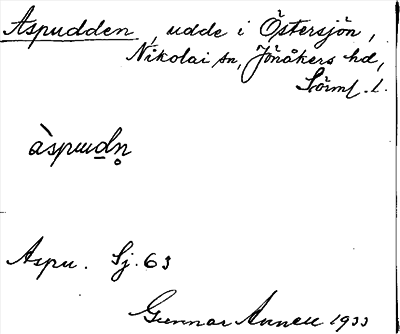 Aspudden, udde i Östersjön,
Nikolai sn, Jönåkers hd,
Sörml. l.
àspɯdn̥
Aspu. Sj. 63
Gunnar Annell 1933